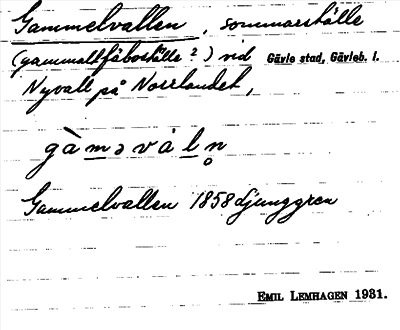 Gammelvallen, sommarställe
(gammalt fäboställe?) vid Gävle stad, Gävleb. l.
Nyvall på Norrlandet,
gàmǝvàln̥
Gammelvallen 1858 Ljunggren
EMIL LEMHAGEN 1931.